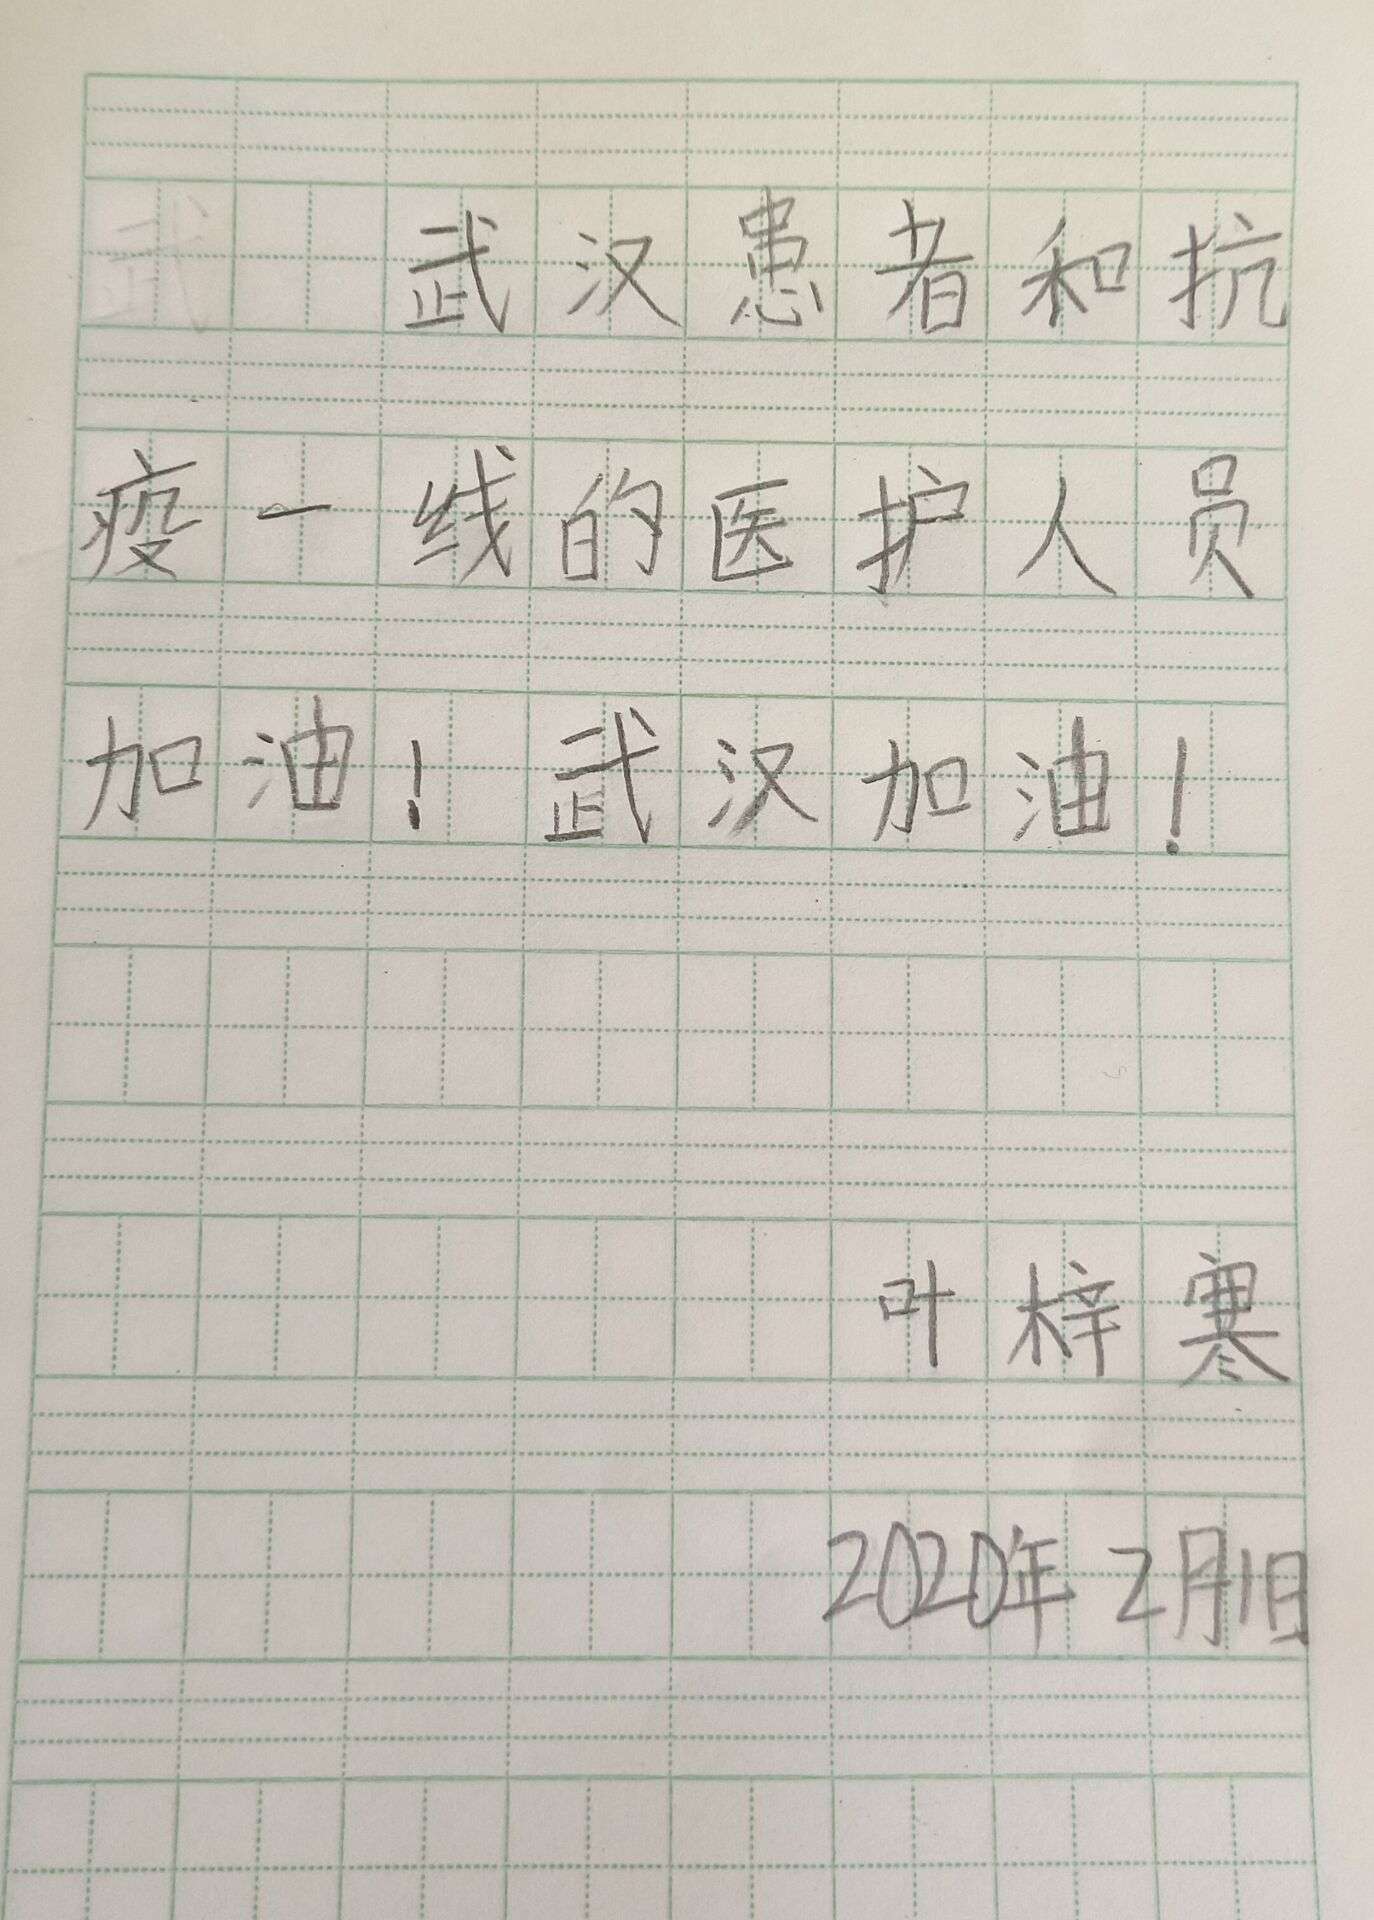 武汉患者和抗
疫一线的医护人员
加油！武汉加油！
叶梓寒
2020年2月1日